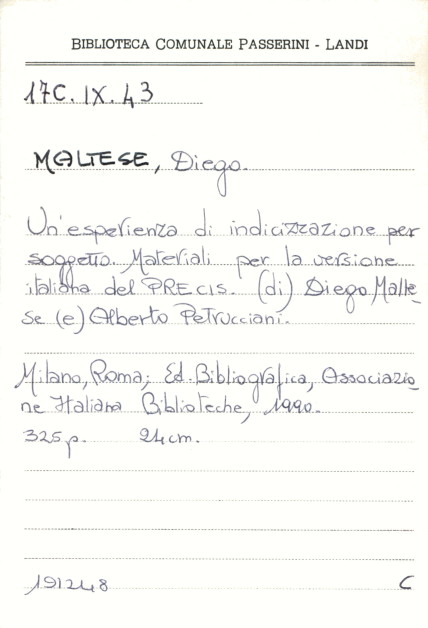 BIBLIOTECA COMUNALE PASSERINI - LANDI
17C. IX. 43
MALTESE, Diego.
Un'esperienza di indicizzazione per
soggetto. Materiali per la versione
italiana del PRECIS. (di) Diego Malte
se (e) Alberto Petrucciani.
Milano, Roma; Ed. Bibliografica, Associazio
ne Italiana Biblioteche, 1990.
325 p. 24 cm.
191248 C